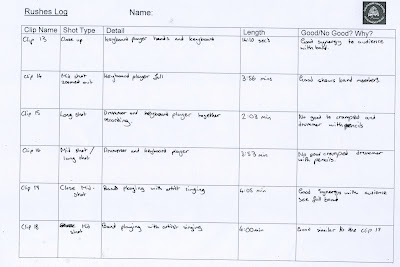 Rushes Log Name:
Clip Name Shot Type Detail Length Good/No Good? Why?
Clip 13 Close up keyboard player hands and keyboard secs Good synergy to audience
with band
Clip 14 Mid shot keyboard player full 3:56 mins Good shows band members
zoomed out
Clip 15 Long shot Drummer and keyboard player together 2:03 min No good to cramped and
recording. drummer with pencils
Clip 16 Mid shot / Drummer and keyboard player 2:53 min No good cramped drummer
long shot with pencils.
Clip Close Mid- Band playing with artist singing 4:05 min Good synergy with audience
shot see full band
Clip 18 Mid Band playing with artist singing 4:00 min Good similar to the clip 17
shot